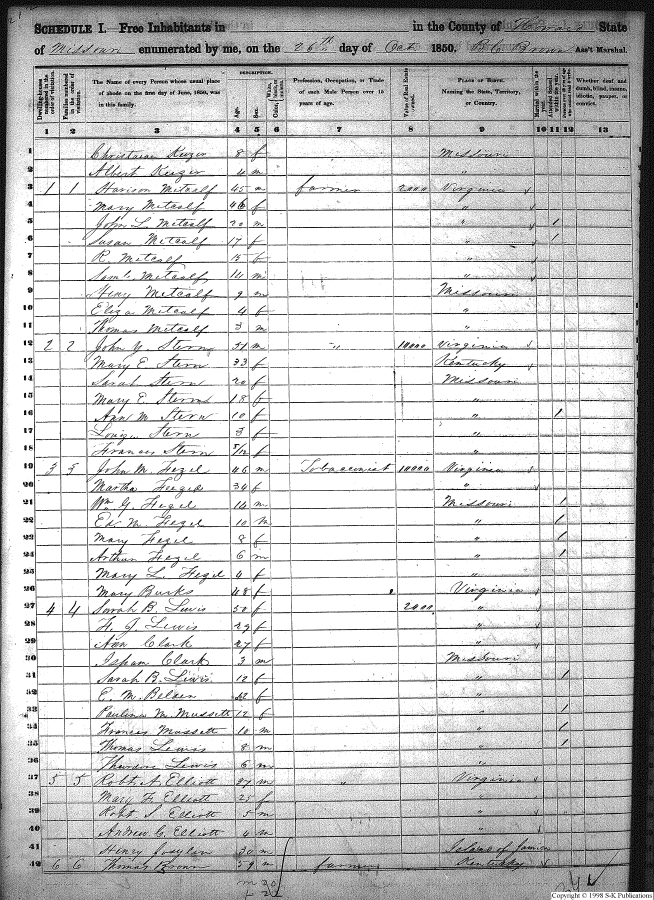 SCHEDULE I. - Free Inhabitants in in the County of Howard State
of Missouri enumerated by me, on the 26th day of Oct 1850. Brown Ass't Marshal.
Dwelling-houses numbered in the order of visitation.
Families numbered in the order of visitation.
The Name of every Person whose usual place of abode on the first day of June, 1850, was in this family.
DESCRIPTION.
Age.
Sex.
Color,
Profession, Occupation, or Trade of each Male Person over 15 years of age.
Value of Real Estate owned.
PLACE OF BIRTH. Naming the State, Territory, or Country.
Married within the year.
Attended School within the year.
Whether deaf and dumb, blind, insane, idiotic, pauper, or convict.
1 2 3 4 5 6 7 8 9 10 11 12 13
1 Christian Kuzer 8 f Missouri
2 Albert Kuzer 4 m "
3 1 1 Harison Metcalf 45 m farmer 2000 Virginia
4 Mary Metcalf 46 f "
5 John L Metcalf 20 m " 1
6 Susan Metcalf 17 f " 1
7 R. Metcalf 15 f "
8 Saml. Metcalf 14 m "
9 Heny Metcalf 9 m Missouri
10 Eliza Metcalf 4 f "
11 Thomas Metcalf 3 m "
12 2 2 John Y. Stern 51 m " 10000 Virginia
13 Mary E Stern 33 f Kentucky
14 Sarah Stern 20 f Missouri
15 Mary E Sterns 18 f "
16 Ann M Stern 10 f " 1
17 Louiza Stern 3 f "
18 Frances Stern /12 f "
19 3 3 John M Hezel 46 m Tobacconist 10000 Virginia
20 Martha Hegel 34 f "
21 Wm G. Hegel 14 m Missouri 1
22 Ed. M. Hegel 10 m " 1
23 Mary Hegel 8 f " 1
24 Arthur Hegel 6 m " 1
25 Mary L. Hegel 4 f "
26 Mary Burks 48 f Virginia
27 4 4 Sarah B. Lewis 50 f 2000 "
28 H. J. Lewis 29 f "
29 Ann Clark 27 f "
30 Clark 3 m Missouri
31 Sarah B. Lewis 12 f " 1
32 E. M. Belsen 22 f "
33 Paulina M. Mussett 12 f " 1
34 Francis Mussett 10 m " 1
35 Thomas Lewis 8 m " 1
36 Lewis 6 m "
37 5 5 Robt. A. Elliott 37 m " Virginia
38 Mary F. Elliott 25 f "
39 Robt S Elliott 5 m "
40 Andrew C. Elliott 4 m "
41 Henry 30 m Island of Jamaica
42 6 6 Thomas Brown 59 m farming Kentucky
m 20
f 22
Copyright © 1998 S-K Publications